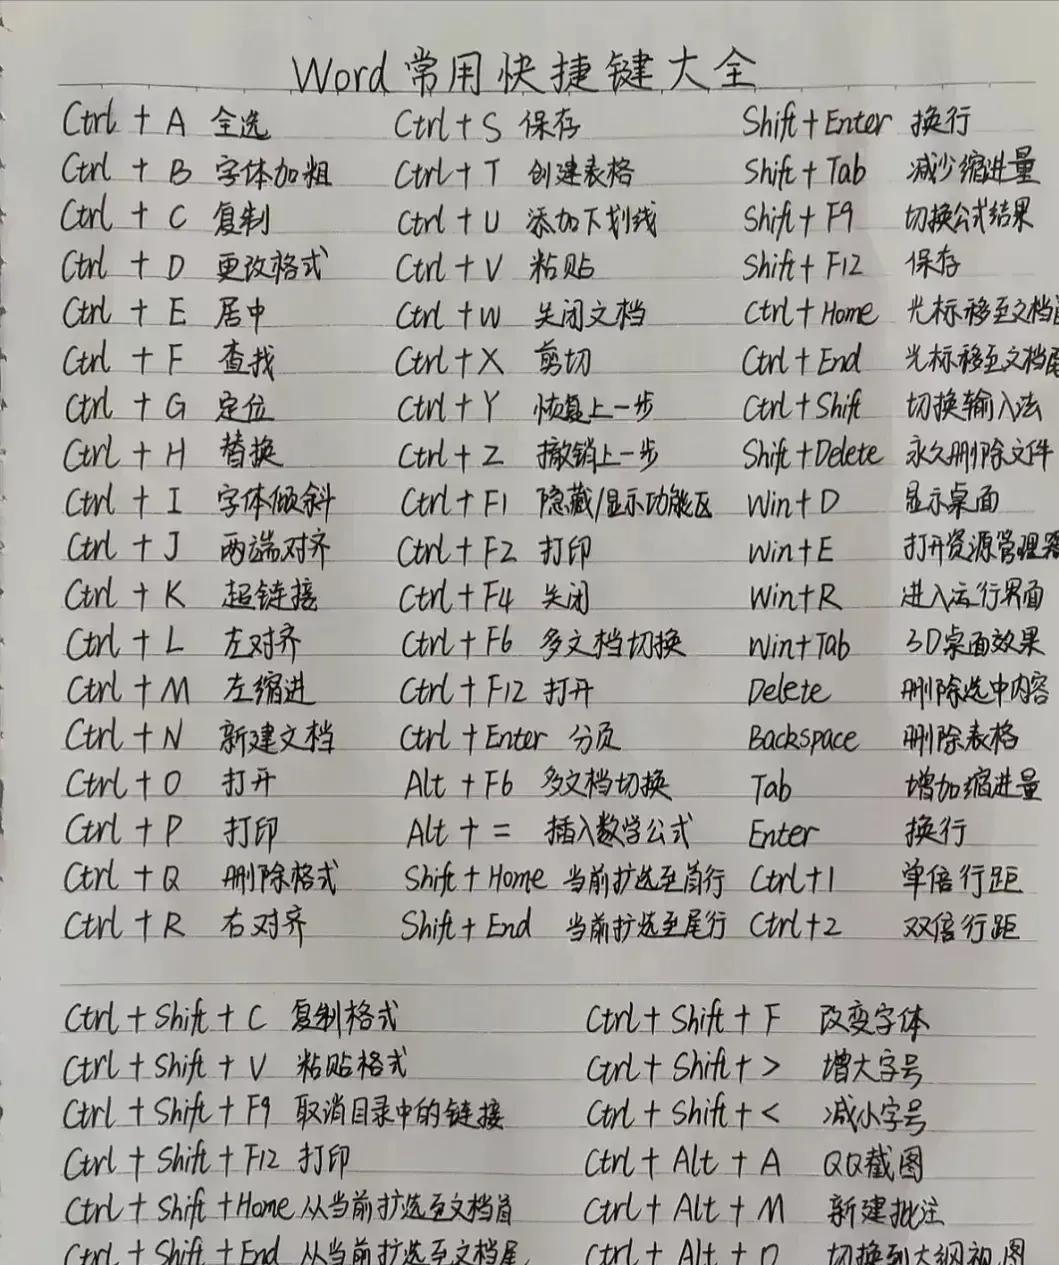 Word常用快捷键大全
Ctrl + A 全选 Ctrl + S 保存 Shift + Enter 换行
Ctrl + B 字体加粗 Ctrl + T 创建表格 Shift + Tab 减少缩进量
Ctrl + C 复制 Ctrl + U 添加下划线 Shift + F9 切换公式结果
Ctrl + D 更改格式 Ctrl + V 粘贴 Shift + F12 保存
Ctrl + E 居中 Ctrl + W 关闭文档 Ctrl + Home 光标移至文档首
Ctrl + F 查找 Ctrl + X 剪切 Ctrl + End 光标移至文档尾
Ctrl + G 定位 Ctrl + Y 恢复上一步 Ctrl + Shift 切换输入法
Ctrl + H 替换 Ctrl + Z 撤销上一步 Shift + Delete 永久删除文件
Ctrl + I 字体倾斜 Ctrl + F1 隐藏/显示功能区 Win + D 显示桌面
Ctrl + J 两端对齐 Ctrl + F2 打印 Win + E 打开资源管理器
Ctrl + K 超链接 Ctrl + F4 关闭 Win + R 进入运行界面
Ctrl + L 左对齐 Ctrl + F6 多文档切换 Win + Tab 3D桌面效果
Ctrl + M 左缩进 Ctrl + F12 打开 Delete 删除选中内容
Ctrl + N 新建文档 Ctrl + Enter 分页 Backspace 删除表格
Ctrl + O 打开 Alt + F6 多文档切换 Tab 增加缩进量
Ctrl + P 打印 Alt + = 插入数学公式 Enter 换行
Ctrl + Q 删除格式 Shift + Home 当前扩选至首行 Ctrl + 1 单倍行距
Ctrl + R 右对齐 Shift + End 当前扩选至尾行 Ctrl + 2 双倍行距
Ctrl + Shift + C 复制格式 Ctrl + Shift + F 改变字体
Ctrl + Shift + V 粘贴格式 Ctrl + Shift + > 增大字号
Ctrl + Shift + F9 取消目录中的链接 Ctrl + Shift + < 减小字号
Ctrl + Shift + F12 打印 Ctrl + Alt + A QQ截图
Ctrl + Shift + Home 从当前扩选至文档首 Ctrl + Alt + M 新建批注
Ctrl + Shift + End 从当前扩选至文档尾 Ctrl + Alt + O 切换到大纲视图